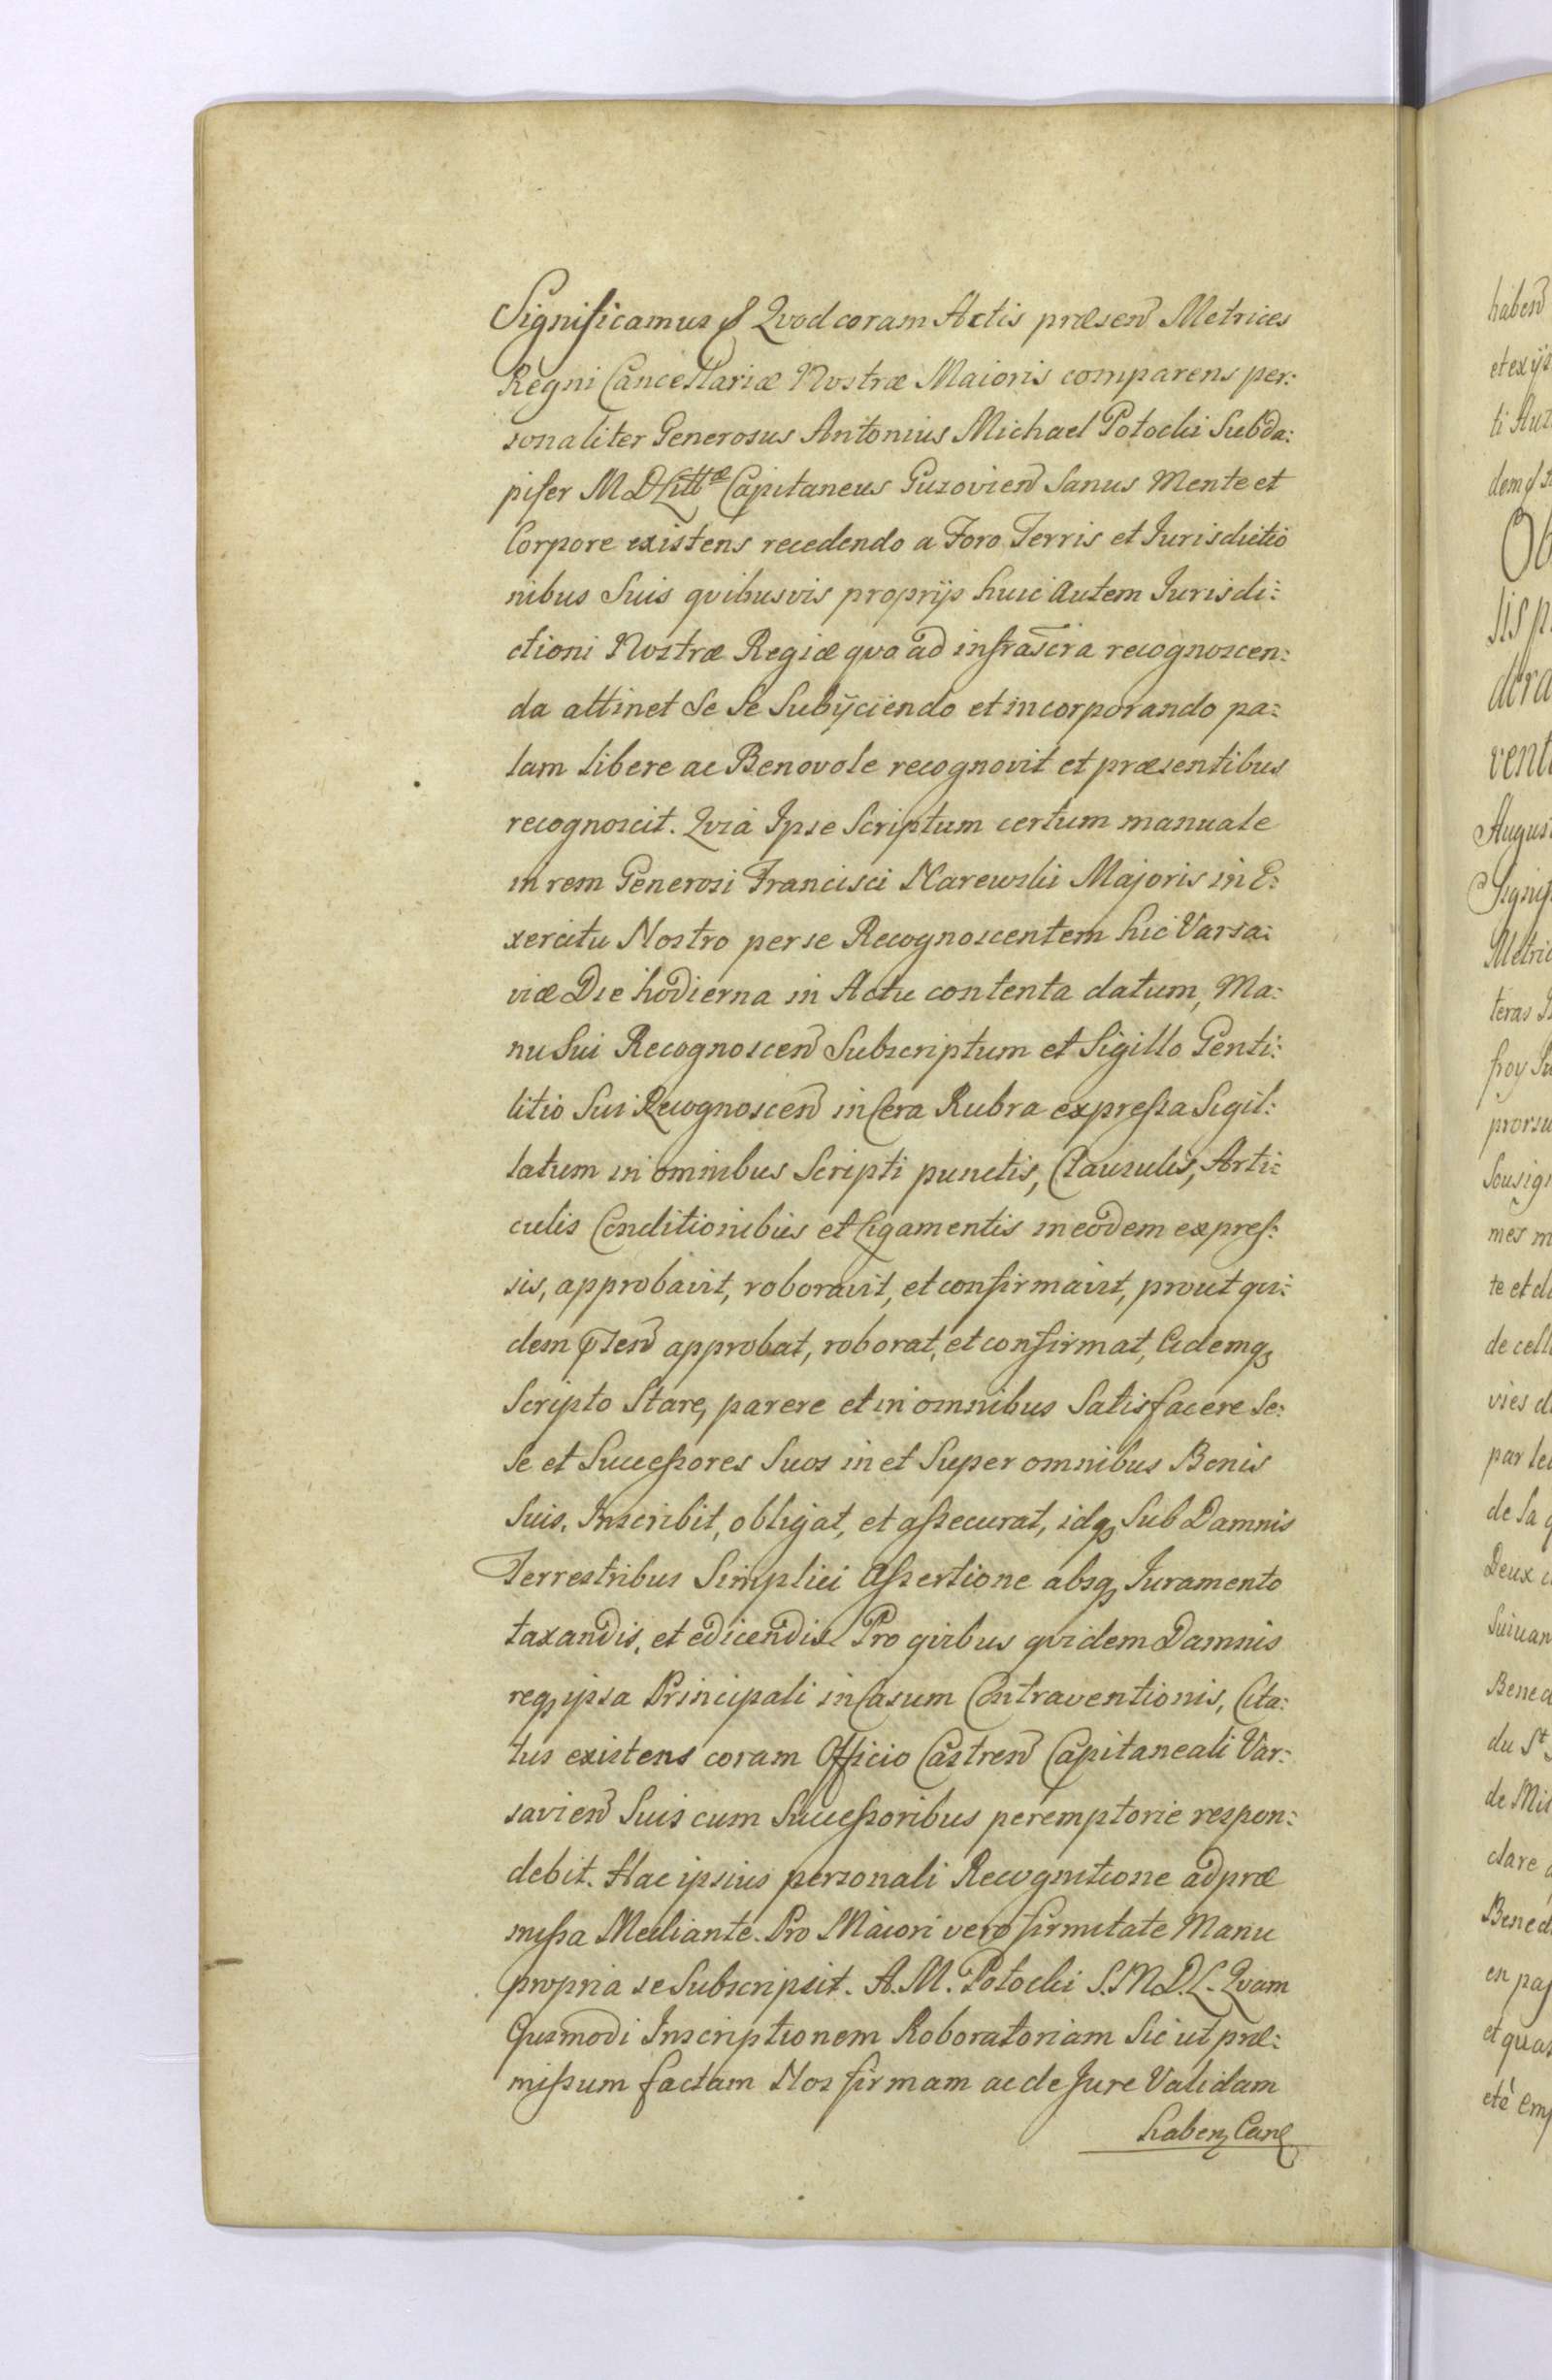 Significamus &c Qvod coram Actis præsen Metrices
Regni Cancellariæ Nostræ Maioris comparens per:
sonaliter Generosus Antonius Michael Potocki Subda:
pifer M D Littæ Capitaneus Guzovien Sanus Mente et
Corpore existens recedendo a Foro Terris et Jurisdictio
nibus Suis qvibusvis proprijs huic autem Jurisdi:
ctioni Nostræ Regiæ qvo ad infrascra recognoscen:
da attinet Se Se Subijciendo et incorporando pa:
lam libere ac Benovole recognovit et præsentibus
recognoscit. Qvia Ipse Scriptum certum manuale
in rem Generosi Francisci Narewski Majoris in E:
xercitu Nostro per se Recognoscentem hic Varsa:
viæ Die hodierna in Actu contenta datum, Ma:
nu Sui Recognoscen Subscriptum et Sigillo Genti:
litio Sui Recognoscen in Cera Rubra expressa Sigil:
latum in omnibus Scripti punctis, Clausulis, Arti:
culis Conditionibus et Ligamentis in eodem expres:
sis, approbavit, roboravit, et confirmavit, prout qvi:
dem pnsen approbat, roborat, et confirmat, Eidemq
Scripto Stare, parere et in omnibus Satisfacere Se:
Se et Successores Suos in et Super omnibus Bonis
Suis, Inscribit, obligat, et assecurat, idq Sub Damnis
Terrestribus Simplici Assertione absq Juramento
taxandis, et edicendis Pro qvibus qvidem Damnis
req ipsa Principali in Casum Contraventionis, Cita:
tus existens coram Officio Castren Capitaneali Var:
savien Suis cum Successoribus peremptorie respon:
debit. Hac ipsius personali Recognitione ad præ
missa Mediante. Pro Maiori vero firmitate Manu
propria se Subscripsit. A. M. Potocki S. M. D. L. Qvam
Ejusmodi Inscriptionem Roboratoriam Sic ut præ:
missum factam Nos firmam ac de Jure Validam
haben
haben
et exijs
ti Au
August
Signif
Metric
teras
prorsu
Sousig
mes m
te et d
de cell
vies d
par le
de Sa
Deux
Suivan
Bened
du St
de Mil
clare
Bened
en pa
et qua
eté em